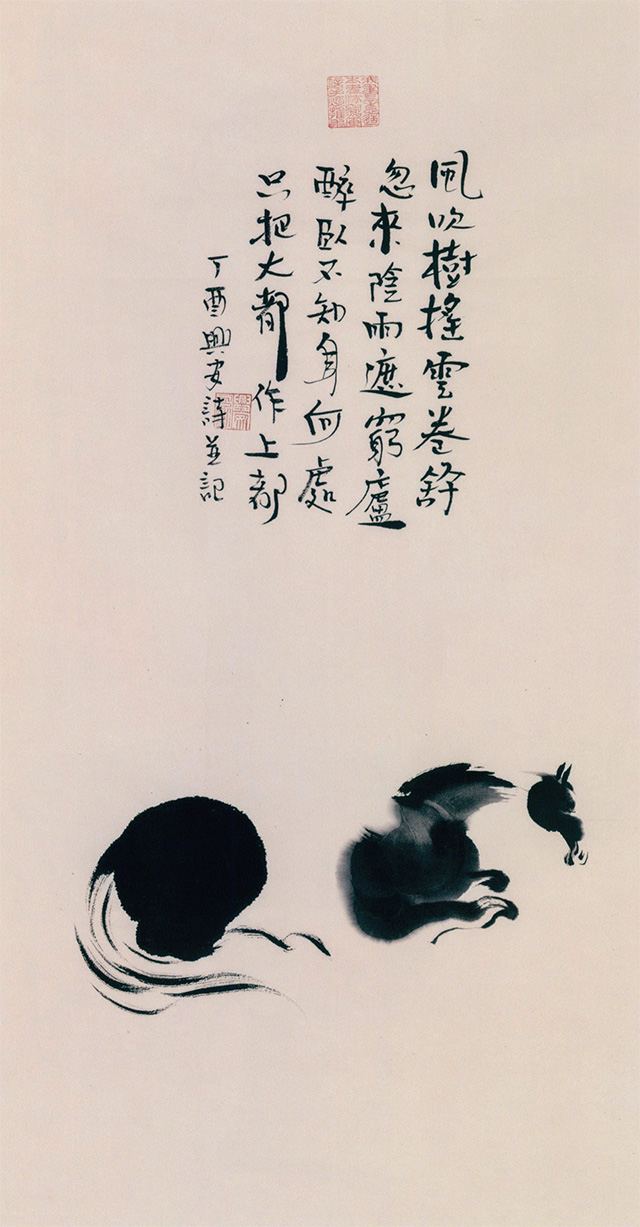 風吹樹搖雲卷舒
忽來陰雨遮窮廬
醉臥不知身何處
只把大都作上都
丁酉興安詩並記